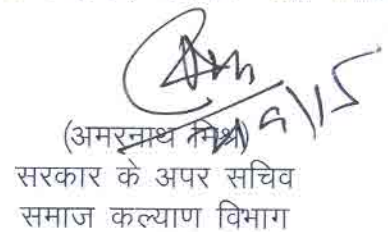 (अमरनाथ मिश्र)
सरकार के अपर सचिव
समाज कल्याण विभाग